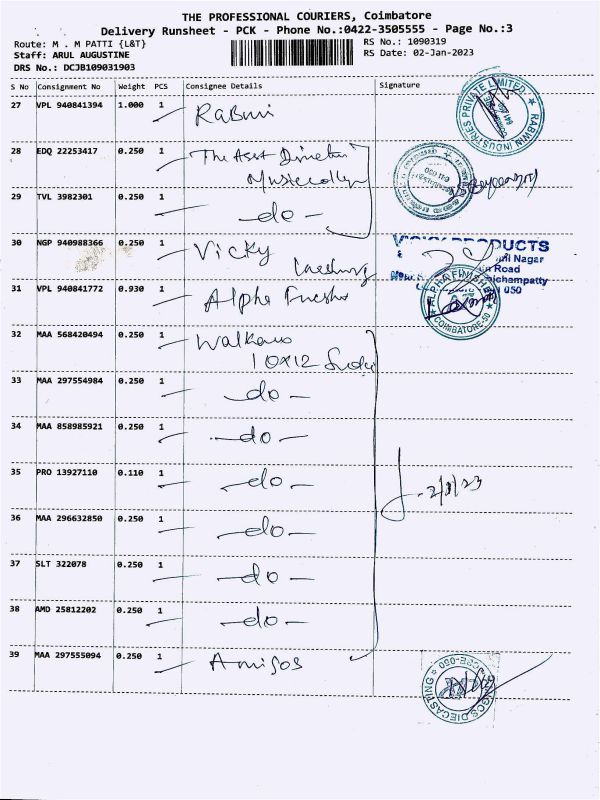 THE PROFESSIONAL COURIERS, Coimbatore
Delivery Runsheet - PCK - Phone No.:0422-3505555 - Page No.:3
Route: M . M PATTI {L&T}
RS No.: 1090319
Staff: ARUL AUGUSTINE
RS Date: 02-Jan-2023
DRS No.: DCJB109031903
S No Consignment No Weight PCS Consignee Details Signature
27 VPL 940841394 1.000 1 Rabwin
RABWIN INDUSTRIES PRIVATE LIMITED
28 EDQ 22253417 0.250 1 The Asst Director
641 050
29 TVL 3982301 0.250 1 -do-
30 NGP 940988366 0.250 1 Vicky
VICKY PRODUCTS
Nagar
Road
ichampatty
050
31 VPL 940841772 0.930 1 Alpha
ALPHA FINISHE
COIMBATORE-50
32 MAA 568420494 0.250 1
10x12
33 MAA 297554984 0.250 1 -do-
34 MAA 858985921 0.250 1 -do-
35 PRO 13927110 0.110 1 -do-
-2/1/23
36 MAA 296632850 0.250 1 -do-
37 SLT 322078 0.250 1 -do-
38 AMD 25812202 0.250 1 -do-
39 MAA 297555094 0.250 1 Amigos
DIECASTING